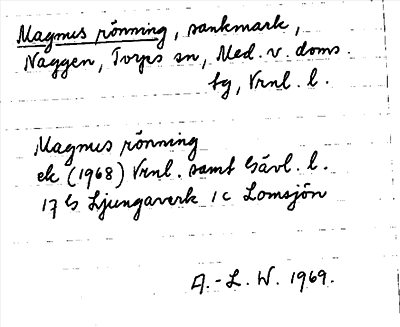 Magnus rönning, sankmark,
Naggen, Torps sn, Med. v. doms.
tg, Vrnl. l.
Magnus rönning
ek (1968) Vrnl. samt Gävl. l.
17 G Ljungaverk 1c Lomsjön
A.-L. W. 1969.